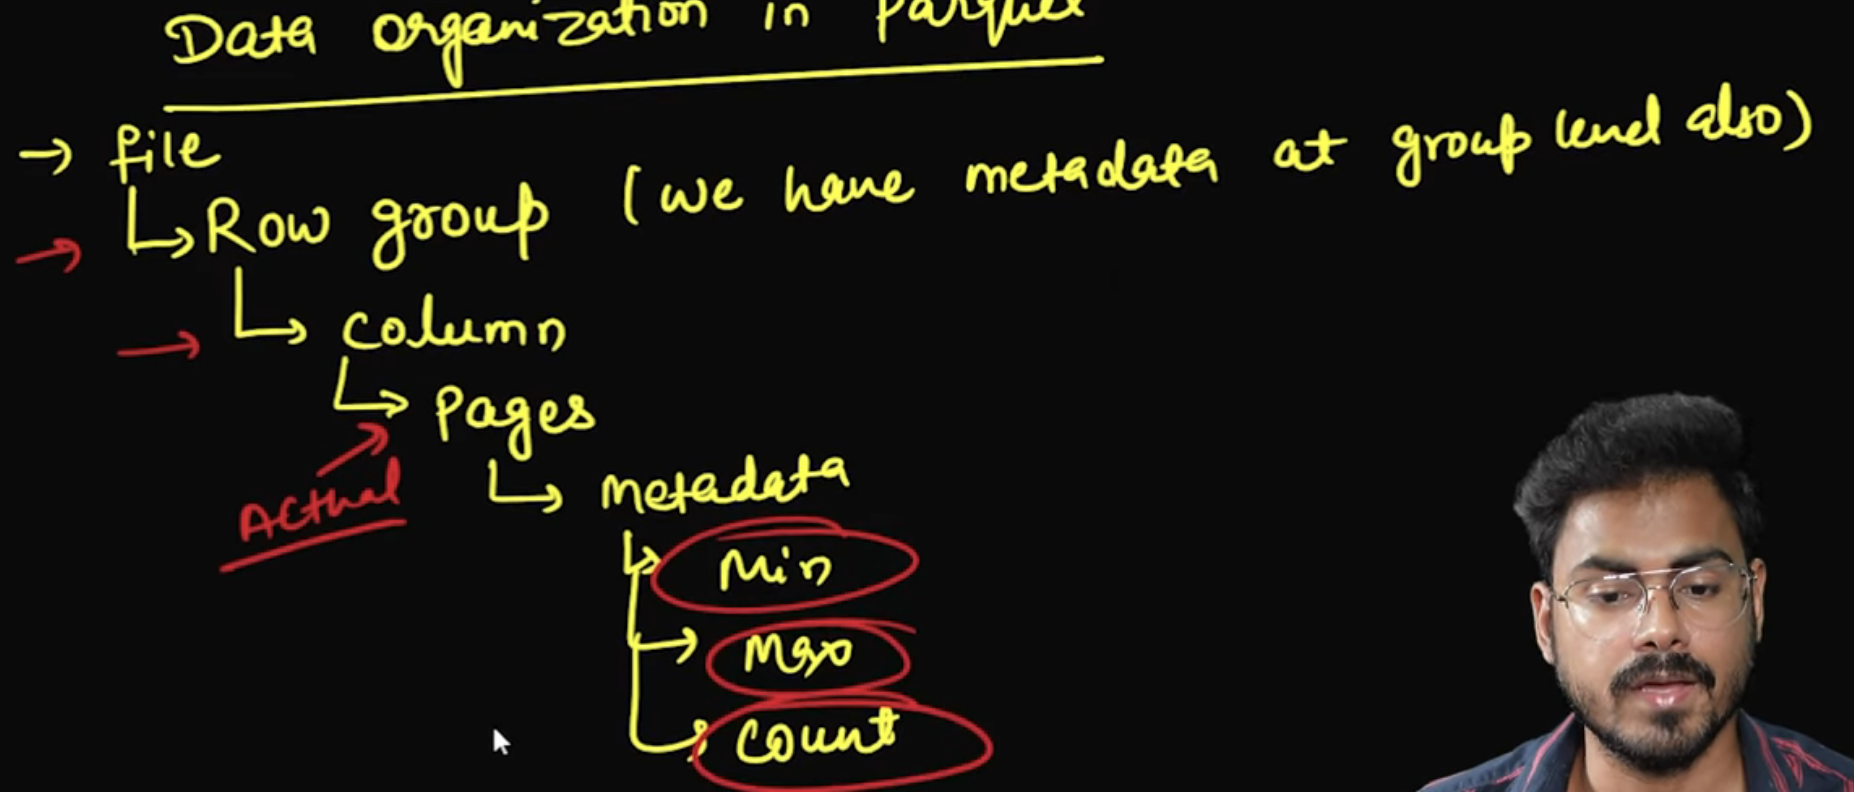 Data organization in Parquet
→ file
→ Row group (we have metadata at group level also)
→ column
→ Pages
Actual
→ metadata
→ Min
→ Max
→ count